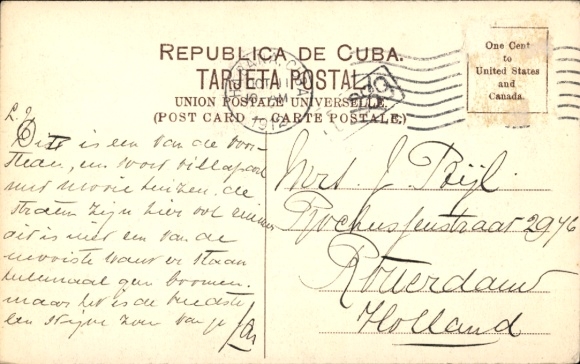 REPUBLICA DE CUBA.
TARJETA POSTAL
UNION POSTALE UNIVERSELLE.
(POST CARD - CARTE POSTALE.)
One Cent
to
United States
and
Canada.
HABANA, CUBA
1912
L. J.
Dit is een van de voor-
steden, een soort villapark
met mooie huizen. de
straten zijn hier ook
dit is met een van de
mooiste want er staan
helemaal geen boomen.
maar het is de breedste
een stijve zoen van je Jan
Mrs. J. Beijl.
Rochussenstraat 29
Rotterdam
Holland